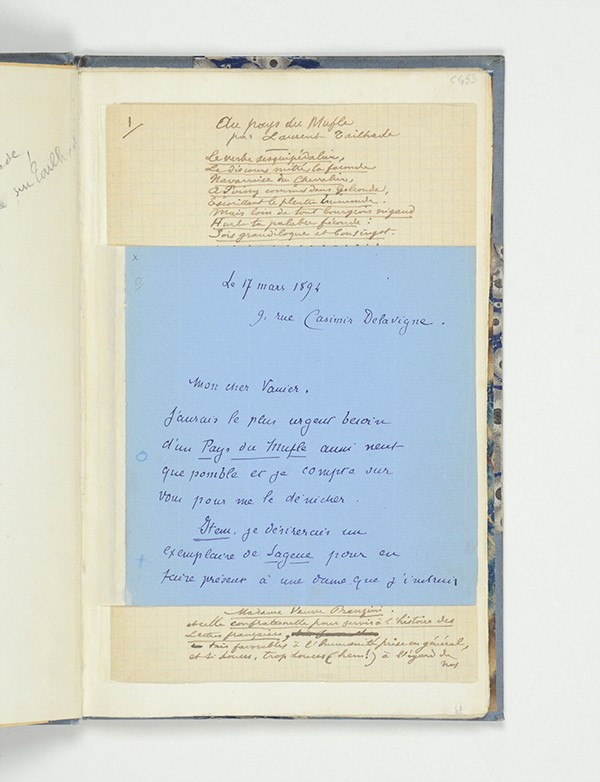 1/
Au pays du Mufle
par Laurent Tailhade
Le verbe sesquipédalier,
Le discours mitré, la faconde
Navarraise du Chevalier,
A Poissy comme dans Golconde,
le pleutre immonde.
Mais loin de tout bourgeois nigaud
Hurle ta palabre féconde :
Sois grandiloque et bousingot.
x
Le 17 mars 1894
9, rue Casimir Delavigne.
Mon cher Vanier.
J'aurais le plus urgent besoin
d'un Pays du Mufle aussi neuf
que possible et je compte sur
Vous pour me le dénicher.
Item, je désirerais un
exemplaire de Sagesse pour en
faire présent à une dame que j'instruis
Madame Veuve
confraternelle pour servir à l'histoire des
Lettres françaises,
très favorables à l'humanité prise en général,
et si douces, trop douces (hem!) à l'égard de
nos